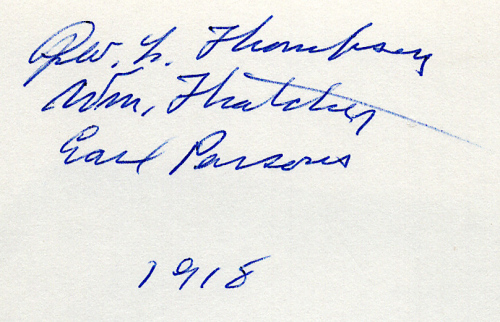 Rev. L. Thompson
Wm, Thatcher
Earl Parsons
1918